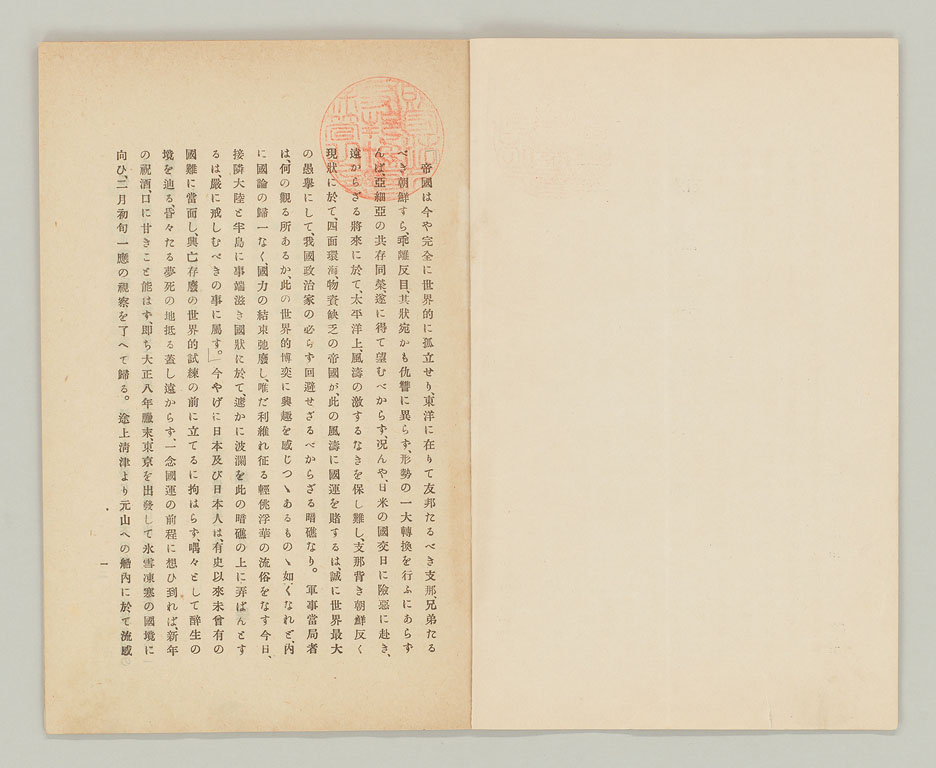 帝國は今や完全に世界的に孤立せり、東洋に在りて友邦たるべき支那、兄弟たる
べき朝鮮すら、乖離反目、其狀宛かも仇讐に異らず、形勢の一大轉換を行ふにあらず
んば、亞細亞の共存同榮、遂に得て望むべからず、况んや、日米の國交日に險惡に赴き、
遠からざる將來に於て、太平洋上、風濤の激するなきを保し難し、支那背き朝鮮反く
現狀に於て、四面環海、物資缺乏の帝國が、此の風濤に國運を賭するは、誠に世界最大
の愚擧にして、我國政治家の必らず回避せざるべからざる暗礁なり。軍事當局者
は、何の觀る所あるか、此の世界的博奕に興趣を感じつヽあるものヽ如くなれど、內
に國論の歸一なく、國力の結束弛廢し、唯だ利維れ征る輕佻浮華の流俗をなす今日、
接隣大陸と半島に事端滋き國狀に於て、遽かに波瀾を此の暗礁の上に弄ばんとす
るは、嚴に戒しむべきの事に屬す。」今やげに日本及び日本人は、有史以來未曾有の
國難に當面し、興亡存廢の世界的試練の前に立てるに拘はらず、喁々として醉生の
境を迪る、昏々たる夢死の地抵る蓋し遠からず、一念國運の前程に想ひ到れば、新年
の祝酒、口に甘きこと能はず、卽ち大正八年臘末、東京を出發して氷雪凍塞の國境に
向ひ、二月初旬一應の視察を了へて歸る。途上淸津より元山への船內に於て流感
一